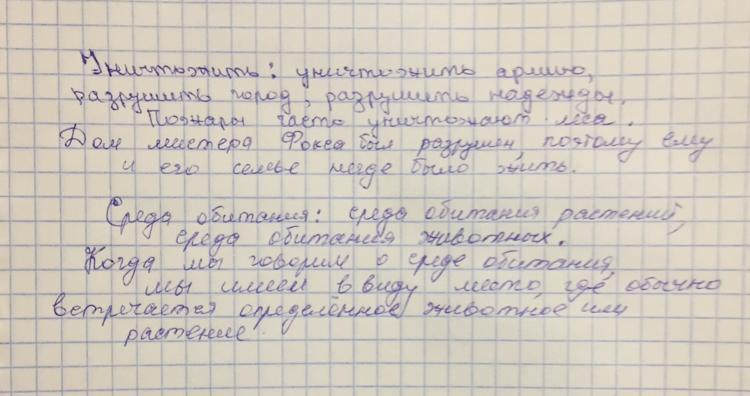 Уничтожить: уничтожить армию,
разрушить город, разрушить надежды.
Пожары часто уничтожают леса.
Дом мистера Фокса был разрушен, поэтому ему
и его семье негде было жить.
Среда обитания: среда обитания растений,
среда обитания животных.
Когда мы говорим о среде обитания,
мы имеем в виду место, где обычно
встречается определённое животное или
растение.